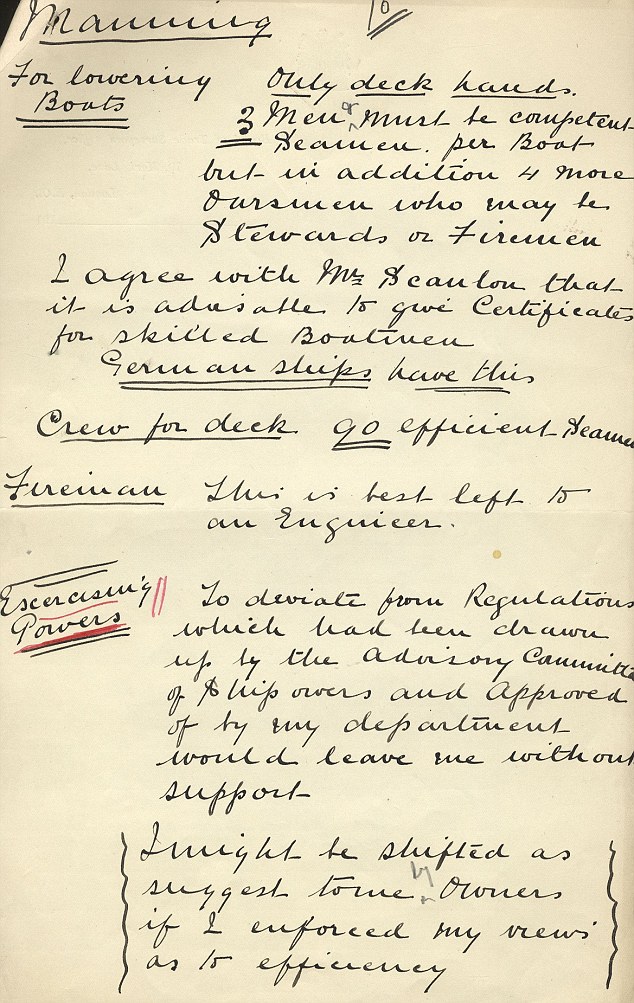 Manning
For lowering Boats
Only deck hands.
3 Men must be competent
Seamen. per Boat
but in addition 4 more
Oarsmen who may be
Stewards or Firemen
I agree with Mr Scanlon that
it is advisable to give Certificates
for skilled Boatmen
German ships have this
Crew for deck 90 efficient Seamen
Fireman This is best left to
an Engineer.
Excercising
Powers
To deviate from Regulations
which had been drawn
up by the Advisory Committee
of Ship owers and Approved
of by my department
would leave me without
support
I might be shifted as
suggest to me by Owners
if I enforced my views
as to efficiency